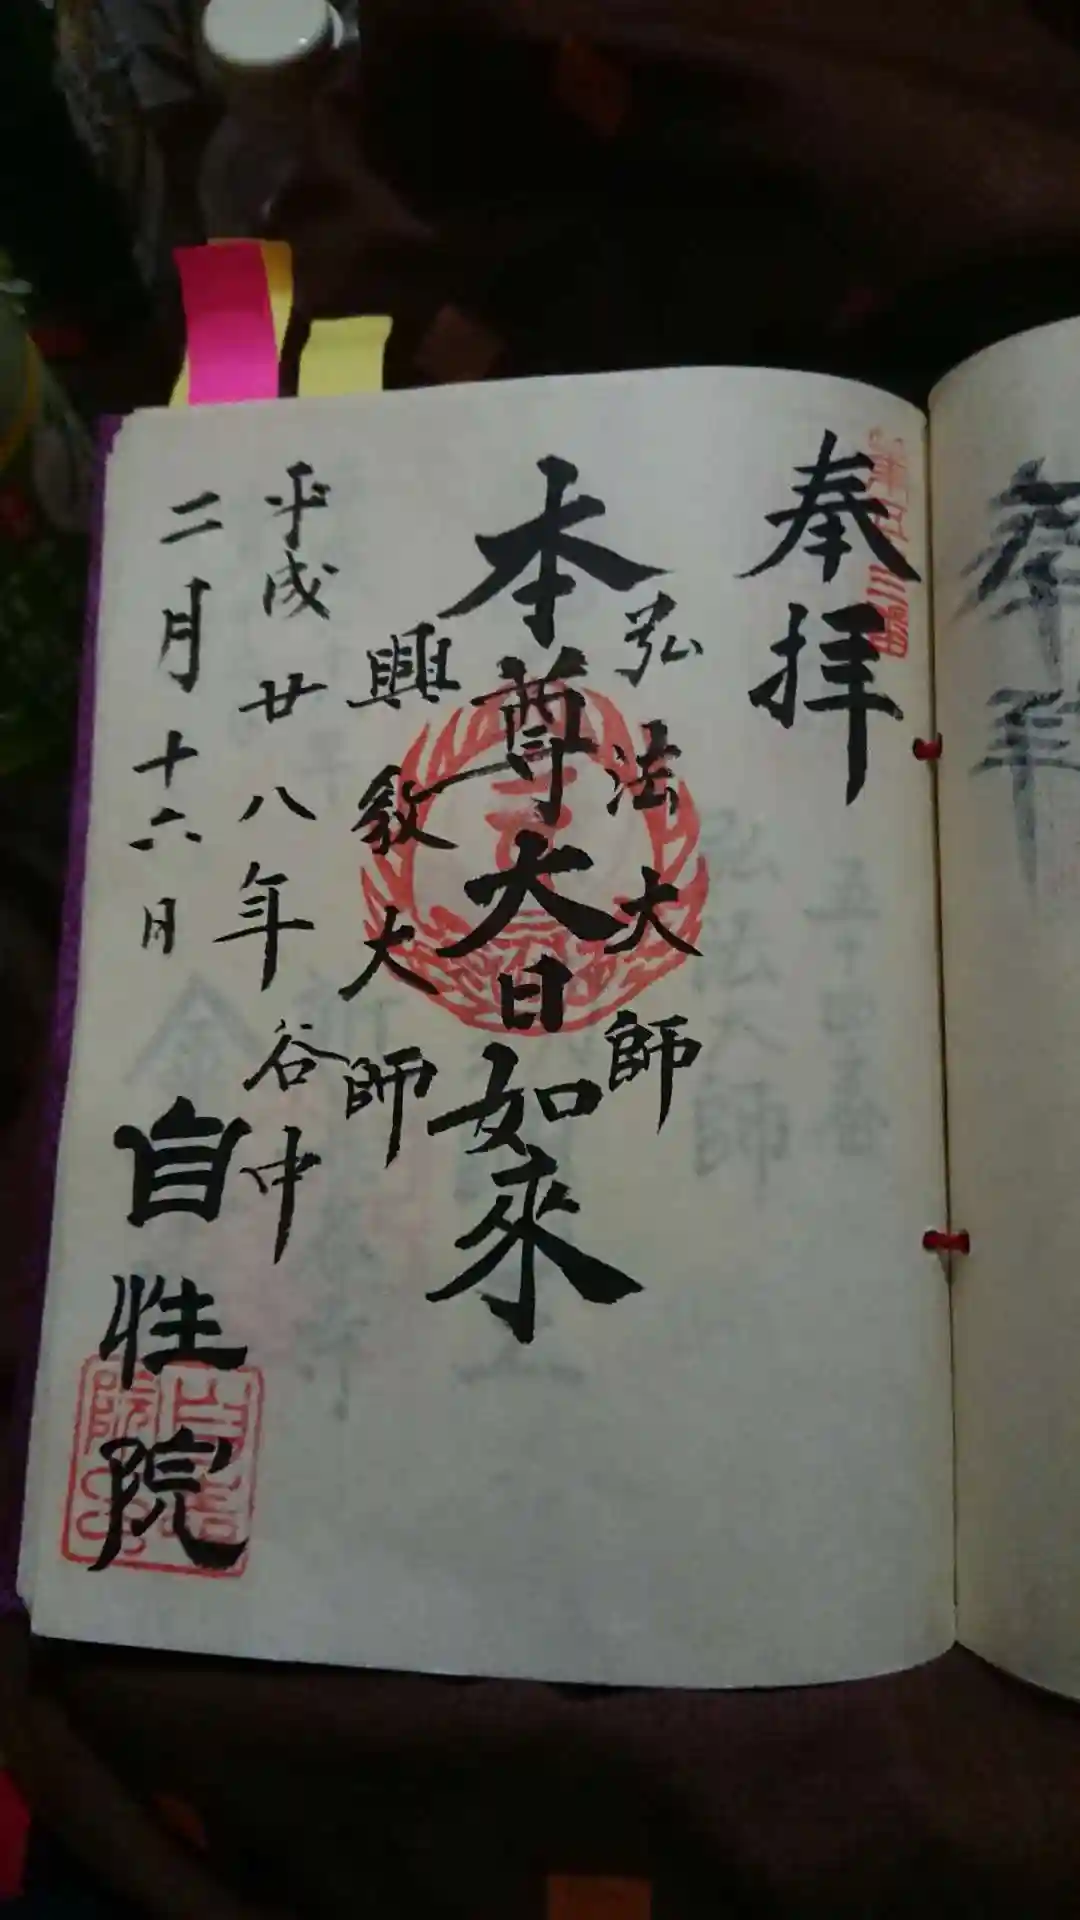 奉拜
弘法大師
本尊大日如來
興教大師
平成廿八年
二月十六日
谷中
自性院